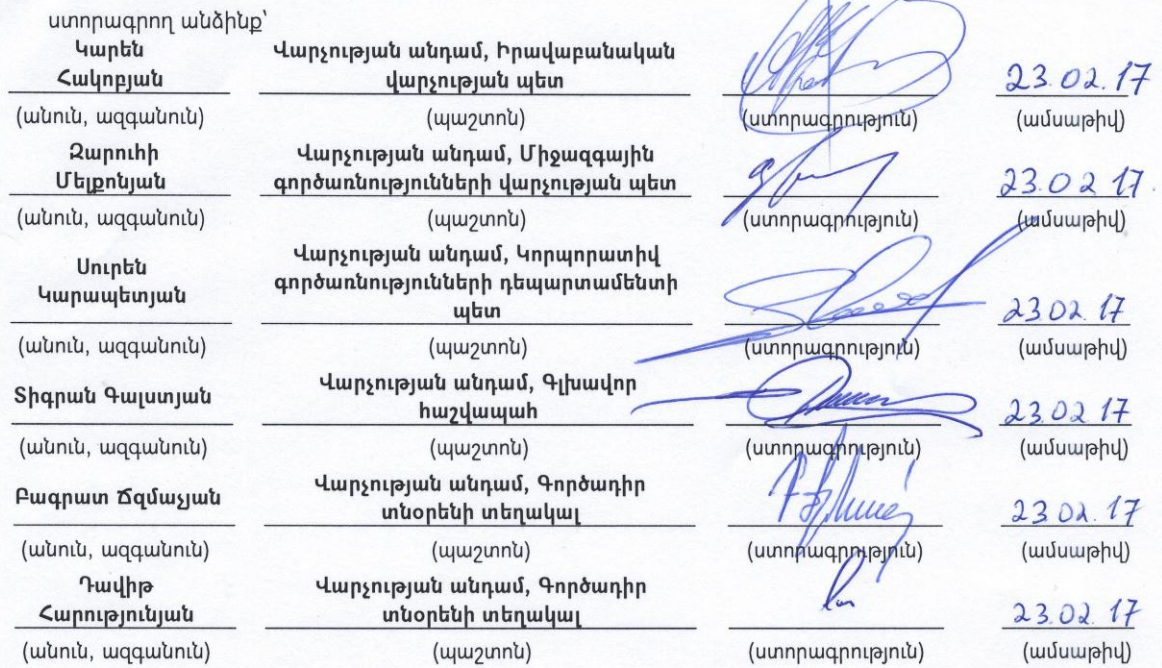 ստորագրող անձինք՝
Կարեն Վարչության անդամ, Իրավաբանական
Հակոբյան վարչության պետ 23.02.17
(անուն, ազգանուն) (պաշտոն) (ստորագրություն) (ամսաթիվ)
Զարուհի Վարչության անդամ, Միջազգային
Մելքոնյան գործառնությունների վարչության պետ 23.02 17.
(անուն, ազգանուն) (պաշտոն) (ստորագրություն) (ամսաթիվ)
Վարչության անդամ, Կորպորատիվ
Սուրեն գործառնությունների դեպարտամենտի
Կարապետյան պետ 23.02.17
(անուն, ազգանուն) (պաշտոն) (ստորագրություն) (ամսաթիվ)
Տիգրան Գալստյան Վարչության անդամ, Գլխավոր
հաշվապահ 23.02.17
(անուն, ազգանուն) (պաշտոն) (ստորագրություն) (ամսաթիվ)
Բագրատ Ճզմաչյան Վարչության անդամ, Գործադիր
տնօրենի տեղակալ 23.02.17
(անուն, ազգանուն) (պաշտոն) (ստորագրություն) (ամսաթիվ)
Դավիթ Վարչության անդամ, Գործադիր
Հարությունյան տնօրենի տեղակալ 23.02.17
(անուն, ազգանուն) (պաշտոն) (ստորագրություն) (ամսաթիվ)